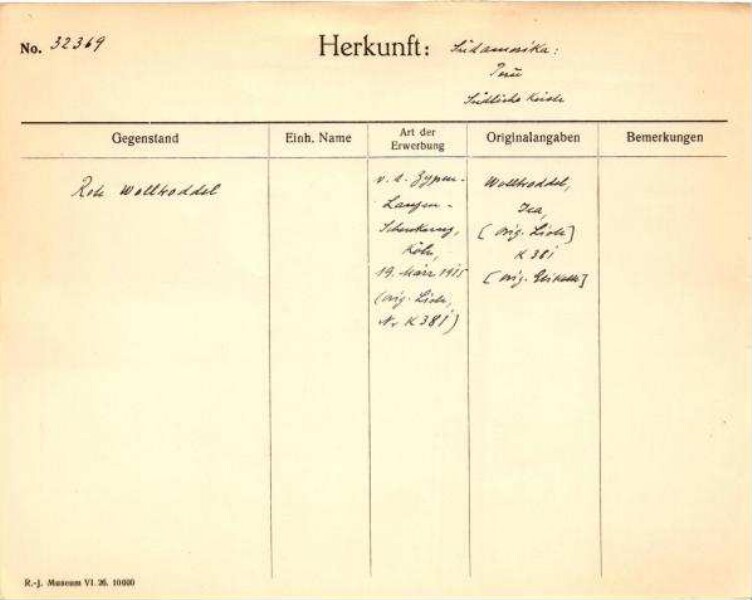 No. 32369
Herkunft: Südamerika:
Perú
Südliche Küste
Gegenstand
Einh. Name
Art der
Erwerbung
Originalangaben
Bemerkungen
Rote Wolltroddel
v. d. Zypen-
Langen-
Schenkung,
Köln,
19. März 1915
(orig. Liste,
Nr K 381)
Wolltroddel,
Ica,
[orig. Liste]
K 381
[orig. Etikette]
R.-J. Museum VI. 26. 10000